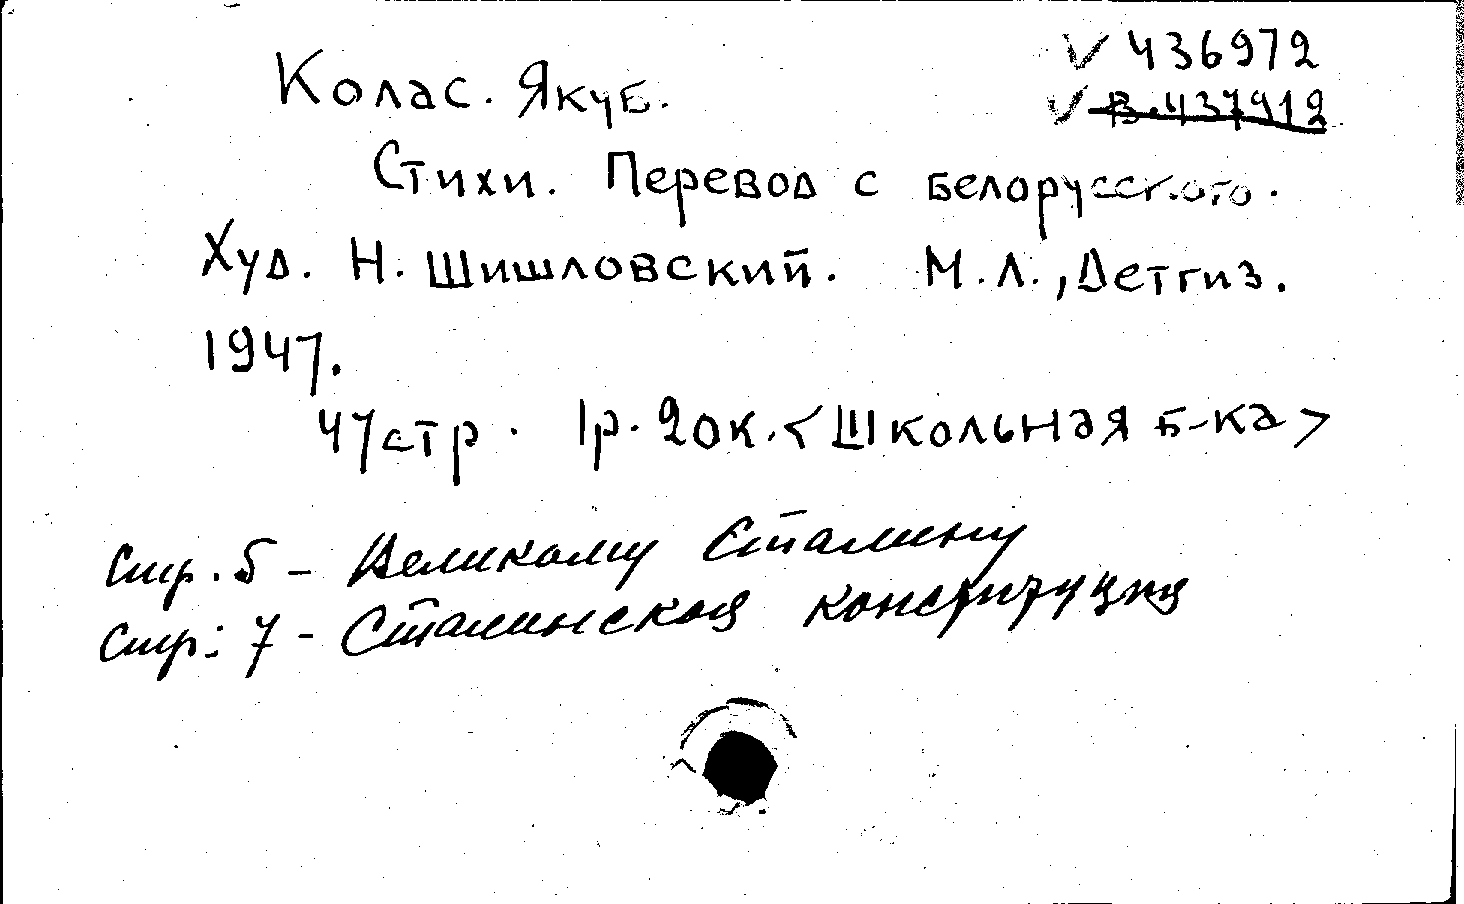 436972
В.437912
Колас. Якуб.
Стихи. Перевод с белорусского.
Худ. Н. Шишловский. М.Л., Детгиз.
1947.
47стр. 1р. 20к. <Школьная б-ка>
Стр. 5 - Великому Сталину
Стр: 7 - Сталинская конституция